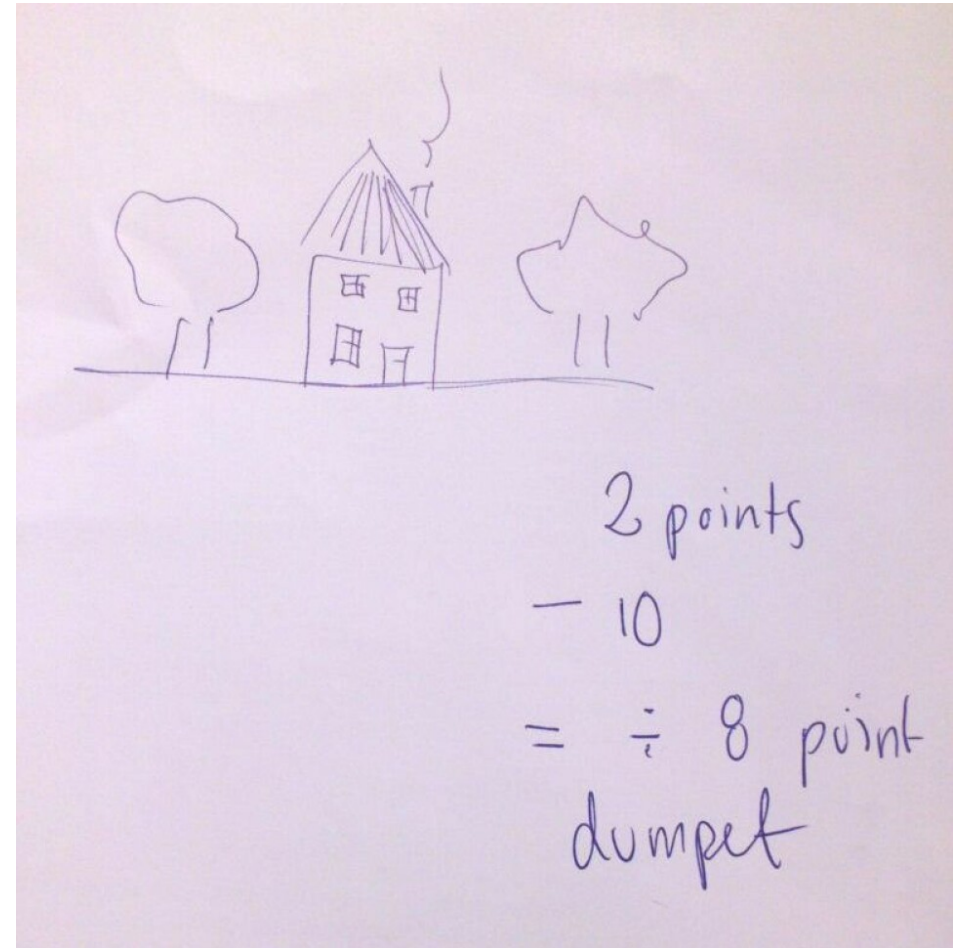 2 points
− 10
= ÷ 8 point
dumpet